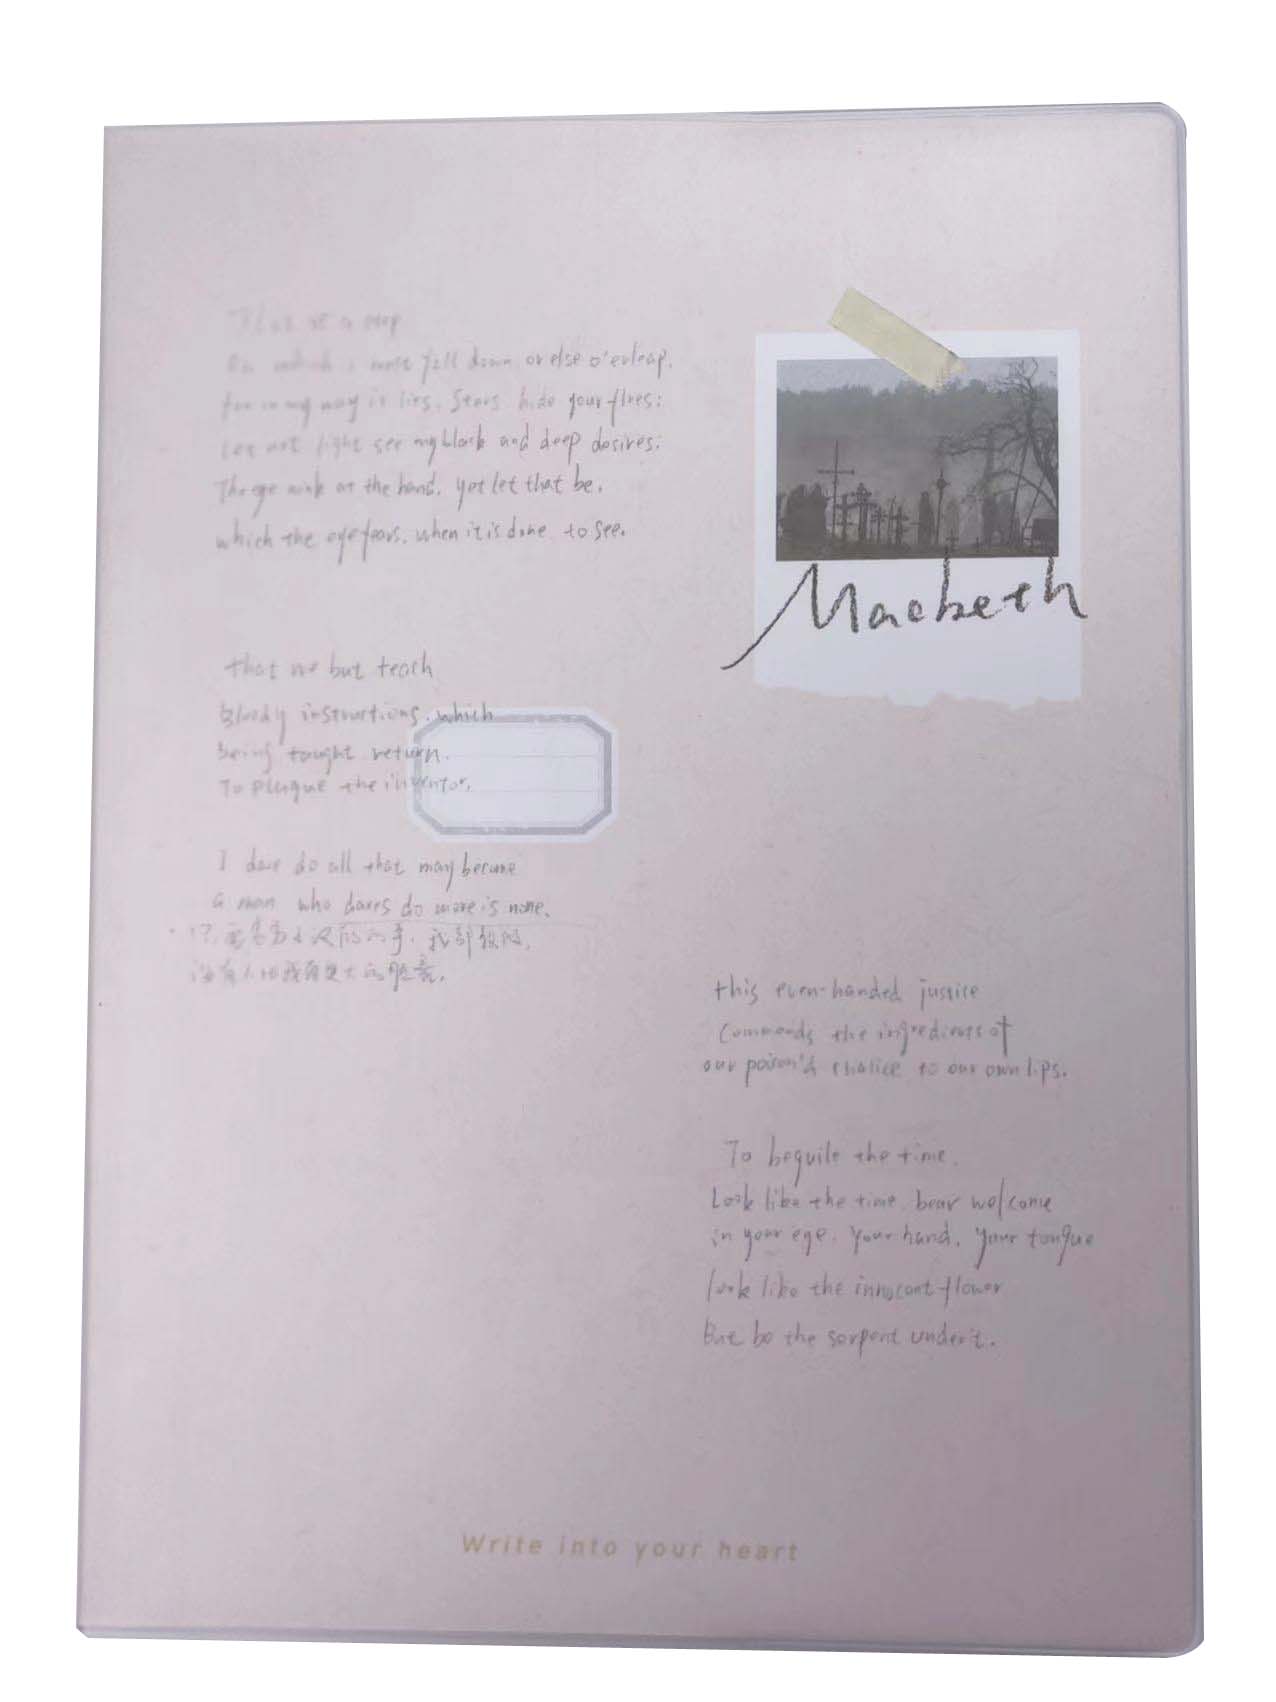 That is a step
On which I must fall down or else o'erleap.
for in my way it lies. Stars hide your fires:
Let not light see my black and deep desires:
The eye wink at the hand. yet let that be.
which the eye fears. when it is done to see.
that we but teach
bloody instructions, which
being taught return.
To plague the inventor.
I dare do all that may become
a man who dares do more is none.
没有人比我有更大的胆量.
Macbeth
this even-handed justice
Commends the ingredients of
our poison'd chalice to our own lips.
To beguile the time.
Look like the time. bear welcome
in your eye. Your hand. Your tongue
look like the innocent flower
But be the serpent under't.
Write into your heart